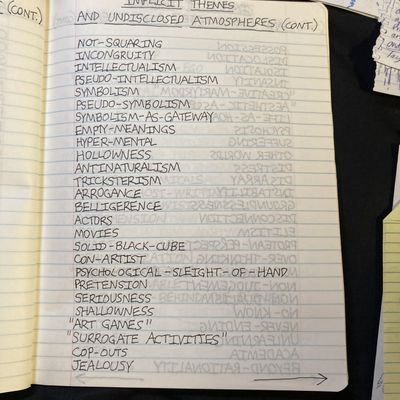 (CONT.)
IMPLICIT THEMES
AND UNDISCLOSED ATMOSPHERES (CONT.)
NOT-SQUARING
INCONGRUITY
INTELLECTUALISM
PSEUDO-INTELLECTUALISM
SYMBOLISM
PSEUDO-SYMBOLISM
SYMBOLISM-AS-GATEWAY
EMPTY-MEANINGS
HYPER-MENTAL
HOLLOWNESS
ANTINATURALISM
TRICKSTERISM
ARROGANCE
BELLIGERENCE
ACTORS
MOVIES
SOLID-BLACK-CUBE
CON-ARTIST
PSYCHOLOGICAL-SLEIGHT-OF-HAND
PRETENSION
SERIOUSNESS
SHALLOWNESS
"ART GAMES"
"SURROGATE ACTIVITIES"
COP-OUTS
JEALOUSY